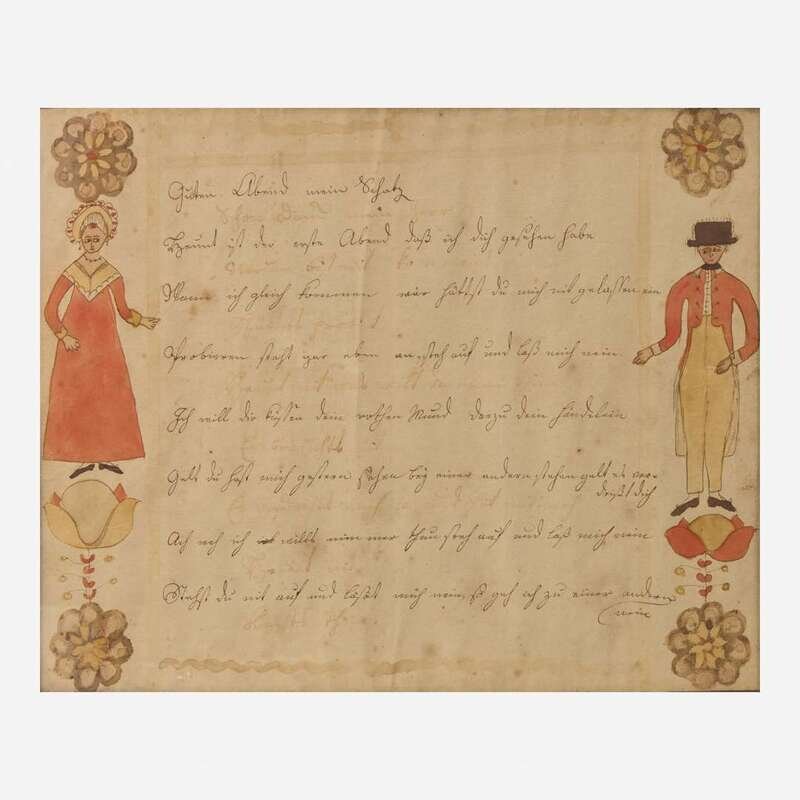 Guten Abend mein Schatz
Heunt ist der erste Abend daß ich dich gesehen habe
Wann ich gleich kommen wär hättst du mich nit gelassen ein
Probieren steht gar eben an steh auf und laß mich nein
Ich will dir küssen dein rothen Mund darzu dein Händelein
Gelt du hast mich gestern sehen bey einer andern stehen gelt es ver-
drißt dich
Ach nein ich wills nimmer thun steh auf und laß mich nein
Stehst du nit auf und läßt mich nein So geh ich zu einer andern
nein